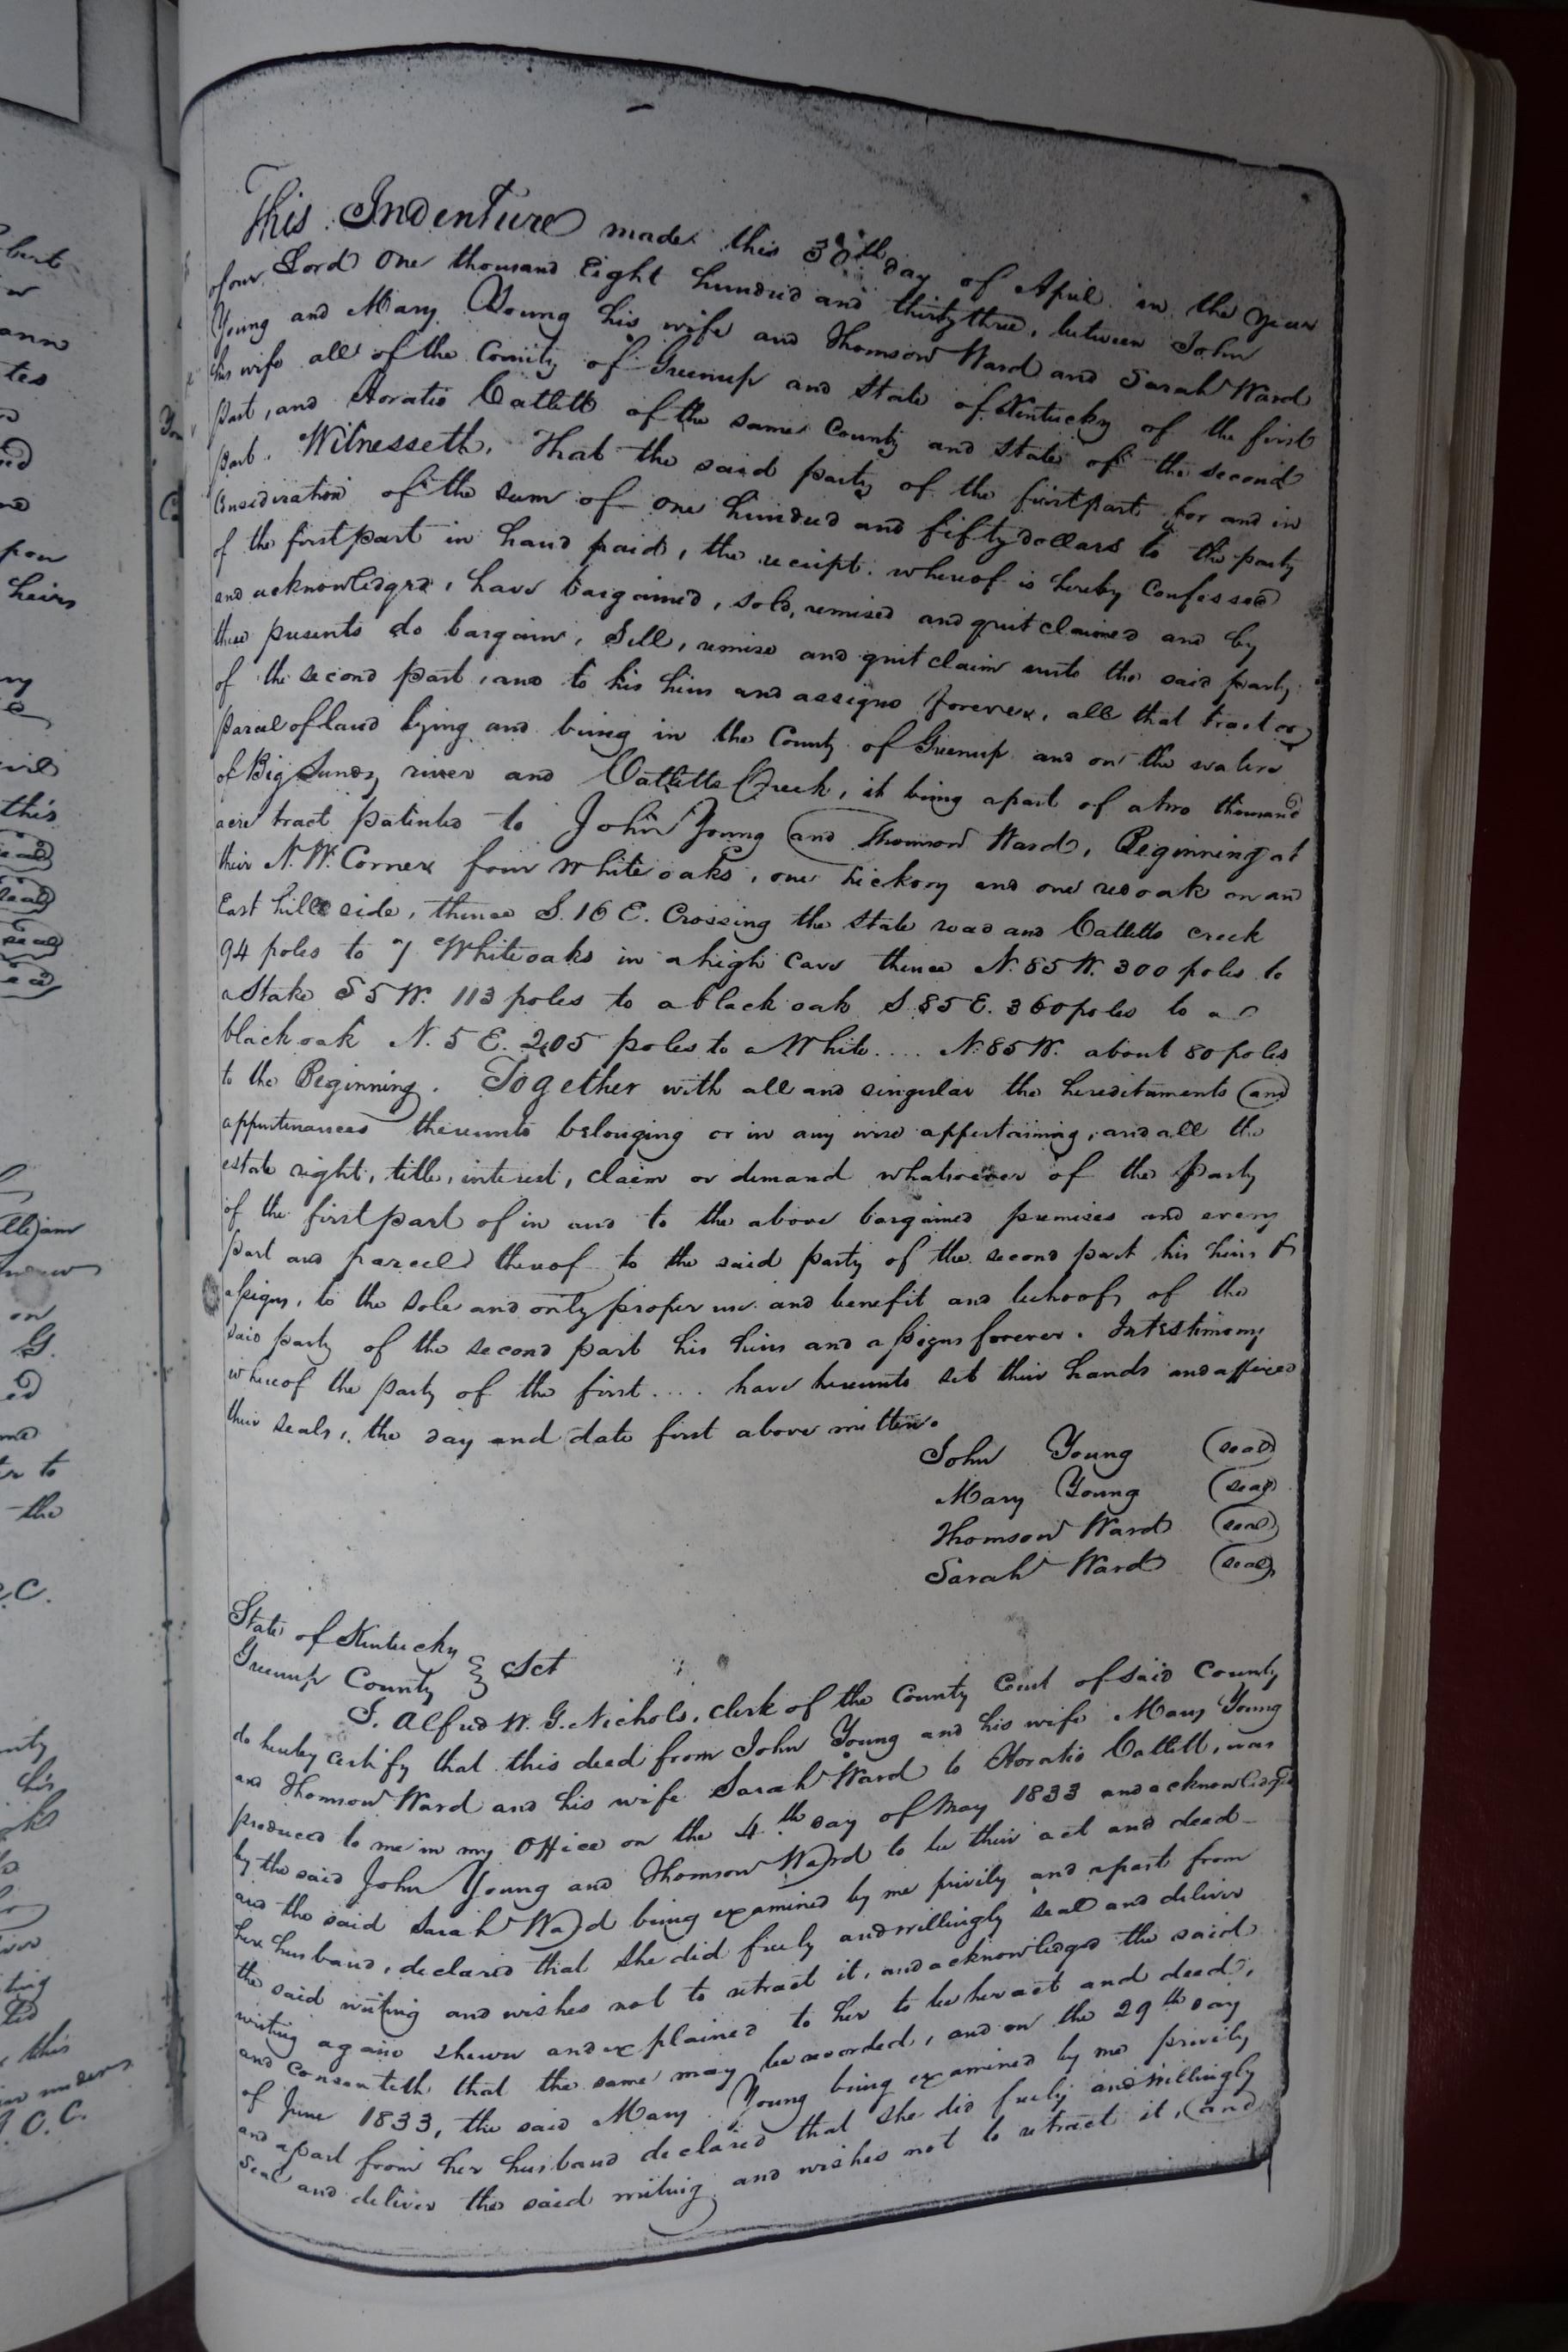 This Indenture made this 30th day of April in the year
of our Lord One thousand Eight hundred and thirty three, between John
Young and Mary Young his wife and Thomson Ward and Sarah Ward
his wife all of the County of Greenup and State of Kentucky of the first
part, and Horatio Catlett of the same County and State of the second
part. Witnesseth, That the said party of the first part, for and in
Consideration of the sum of one hundred and fifty dollars to the party
of the first part in hand paid, the receipt whereof is hereby Confessed
and acknowledged, have bargained, sold, remised and quit claimed and by
these presents do bargain, Sell, remise and quit claim unto the said party
of the second part, and to his heirs and assigns forever, all that tract or
parcel of land lying and being in the County of Greenup and on the waters
of Big Sandy river and Catletts Creek, it being a part of a two thousand
acre tract patented to John Young and Thomson Ward, Beginning at
their N.W. Corner four White oaks, one hickory and one red oak on an
East hill side, thence S. 16 E. Crossing the State road and Catletts creek
94 poles to 7 White oaks in a high Cave thence N. 85 W. 300 poles to
a Stake S 5 W. 113 poles to a black oak S. 85 E. 360 poles to a
black oak N. 5 E. 205 poles to a White .... N. 85 W. about 80 poles
to the Beginning. Together with all and singular the hereditaments and
appurtenances thereunto belonging or in any wise appertaining, and all the
estate right, title, interest, claim or demand whatsoever of the party
of the first part of in and to the above bargained premises and every
part and parcel thereof to the said party of the second part his heirs &
assigns, to the sole and only proper use and benefit and behoof, of the
said party of the second part his heirs and assigns forever. In testimony
whereof the party of the first .... have hereunto set their hands and affixed
their seals, the day and date first above written.
John Young (seal)
Mary Young (seal)
Thomson Ward (seal)
Sarah Ward (seal)
State of Kentucky
Greenup County } Sct
I. Alfred W. G. Nichols, Clerk of the County Court of said County
do hereby certify that this deed from John Young and his wife Mary Young
and Thomson Ward and his wife Sarah Ward to Horatio Catlett, was
produced to me in my Office on the 4th day of May 1833 and acknowledged
by the said John Young and Thomson Ward to be their act and deed
and the said Sarah Ward being examined by me privily and apart from
her husband, declared that she did freely and willingly seal and deliver
the said writing and wishes not to retract it, and acknowledged the said
writing again shewn and explained to her to be her act and deed,
and consenteth that the same may be recorded, and on the 29th day
of June 1833, the said Mary Young being examined by me privily
and apart from her husband declared that she did freely and willingly
seal and deliver the said writing and wishes not to retract it, and